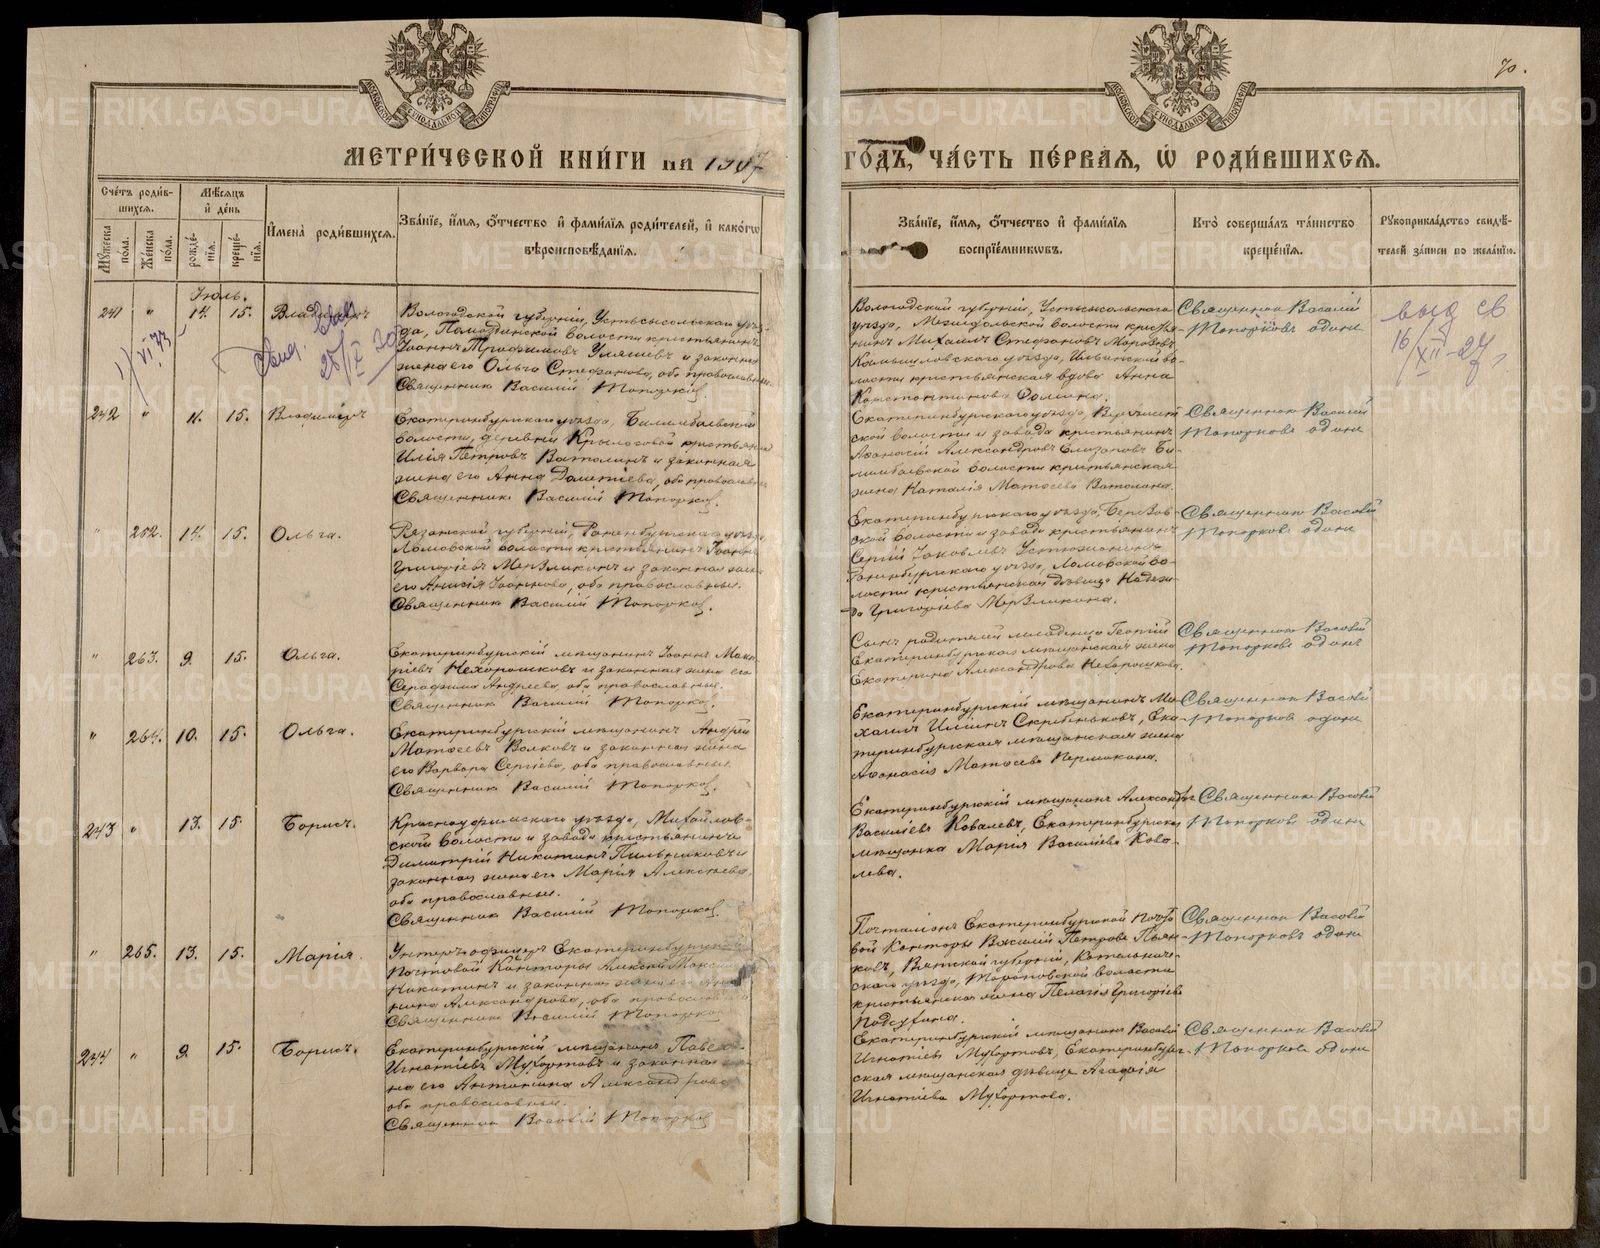 70.
МЕТРИ́ЧЕСКОЙ КНИ́ГИ на 1907
ГО́ДЪ, ЧА́СТЬ ПЕ́РВАЯ, Ѡ РОДИ́ВШИХСЯ.
Сче́тъ роди́вшихся.
Мѣ́сяцъ и де́нь
Мꙋжеска по́ла.
Же́нска по́ла.
рожде́нїя.
креще́нїя.
И҆мена̀ роди́вшихся.
Зва́нїе, и҆́мя, ѻ҆́тчество и҆ фами́лїя роди́телей, и҆ како́гѡ
вѣроисповѣ́данїя.
Зва́нїе, и҆́мя, ѻ҆́тчество и҆ фами́лїя
воспрїе́мниковъ.
Кто̀ соверша́лъ та́инство
креще́нїя.
Рꙋкоприкла́дство свидѣ́-
телей за́писи по жела́нїю.
Іюль.
241 " 14. 15.
Вологодской губерніи, Устьсысольскаго уѣз-
да, Помоздинской волости крестьянинъ
Іоаннъ Трофимовъ Уляшевъ и законная
жена его Ольга Стефанова, оба православные.
Священникъ Василій Топорковъ.
Вологодской губерніи, Устьсысольскаго
уѣзда, волости кресть-
янинъ Михаилъ Стефановъ Морозовъ
Камышловскаго уѣзда, Ильинской во-
лости крестьянская вдова Анна
Константинова Фомина.
Священникъ Василій
Топорковъ одинъ
выд св
16/XII-27
242 " 11. 15. Владиміръ
Екатеринбургскаго уѣзда, Билимбаевской
волости, деревни Крылосовой крестьянинъ
Илія Петровъ Ватолинъ и законная
жена его Анна Дометіева, оба православные
Священникъ Василій Топорковъ.
Екатеринбургскаго уѣзда,
ской волости и завода крестьянинъ
Аѳанасій Александровъ Би-
лимбаевской волости крестьянская
жена Наталія Матѳеева Ватолина.
Священникъ Василій
Топорковъ одинъ
" 262. 14. 15. Ольга.
Рязанской губерніи, Раненбургскаго уѣзда
Ломовской волости крестьянинъ Іоаннъ
Григорьевъ Мерзликинъ и законная жена
его Анисія Іоаннова, оба православные.
Священникъ Василій Топорковъ.
Екатеринбургскаго уѣзда, Березов-
ской волости и завода крестьянинъ
Сергій Іаковлевъ Устюжанинъ
Раненбургскаго уѣзда, Ломовской во-
лости крестьянская дѣвица Надеж-
да Григоріева Мерзликина.
Священникъ Василій
Топорковъ одинъ
" 263. 9. 15. Ольга.
Екатеринбургскій мѣщанинъ Іоаннъ
Нехорошковъ и законная жена его
Серафима Андреева, оба православные.
Священникъ Василій Топорковъ.
Сынъ родителей младенца Георгій
Екатеринбургская мѣщанская жена
Екатерина Александрова Нехорошкова.
Священникъ Василій
Топорковъ одинъ
" 264. 10. 15. Ольга.
Екатеринбургскій мѣщанинъ Андрей
Матѳеевъ Волковъ и законная жена
его Варвара Сергіева, оба православные.
Священникъ Василій Топорковъ.
Екатеринбургскій мѣщанинъ Ми-
хаилъ Иліинъ Скребеньковъ, Ека-
теринбургская мѣщанская жена
Аѳанасія Матѳеева Пермикина.
Священникъ Василій
Топорковъ одинъ
243 " 13. 15. Борисъ.
Красноуфимскаго уѣзда, Михайлов-
ской волости и завода крестьянинъ
Димитрій Никитинъ Пильщиковъ и
законная жена его Марія Алексѣева,
оба православные.
Священникъ Василій Топорковъ.
Екатеринбургскій мѣщанинъ Александръ
Василіевъ Ковалевъ, Екатеринбургская
мѣщанка Марія Василіева Кова-
лева.
Священникъ Василій
Топорковъ одинъ
" 265. 13. 15. Марія.
Унтеръ-офицеръ Екатеринбургской
Почтовой Конторы Алексѣй
Никитинъ и законная жена его
Александрова, оба православные
Священникъ Василій Топорковъ
Почталіонъ Екатеринбургской Почто-
вой Конторы Василій Петровъ Пьян-
ковъ, Вятской губерніи, Котельниче-
скаго уѣзда, волости
крестьянская жена Пелагія Григоріева
Священникъ Василій
Топорковъ одинъ
244 " 9. 15. Борисъ.
Екатеринбургскій мѣщанинъ Павелъ
Игнатіевъ Мухортовъ и законная же-
на его Антонина Александрова
оба православные.
Священникъ Василій Топорковъ
Екатеринбургскій мѣщанинъ Василій
Игнатіевъ Мухортовъ, Екатеринбург-
ская мѣщанская дѣвица Агафія
Игнатіева Мухортова.
Священникъ Василій
Топорковъ одинъ
METRIKI.GASO-URAL.RU